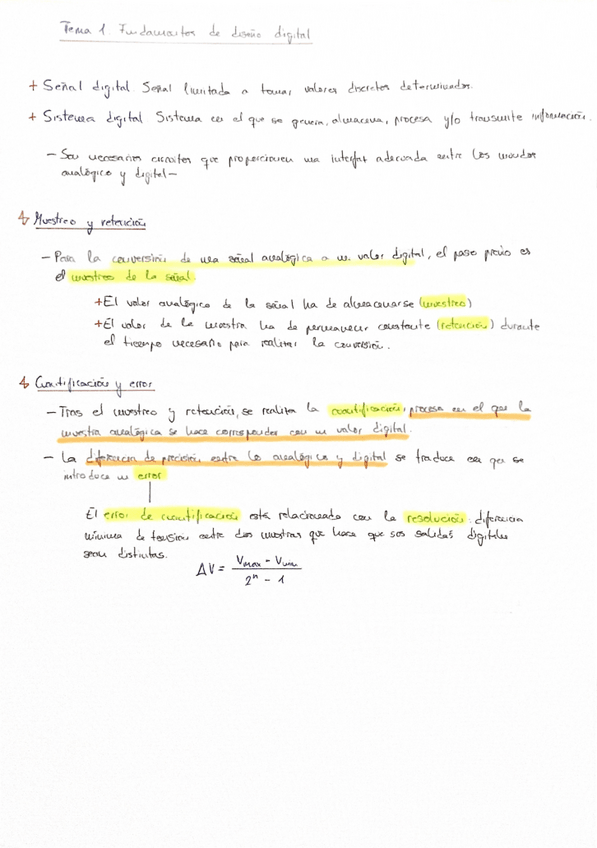 Tema 1. Fundamentos de diseño digital
+ Señal digital Señal limitada a tomar valores discretos determinados.
+ Sistema digital Sistema en el que se genera, almacena, procesa y/o transmite información.
- Son necesarios circuitos que proporcionen una interfaz adecuada entre los mundos
analógico y digital -
Muestreo y retención
- Para la conversión de una señal analógica a un valor digital, el paso previo es
el muestreo de la señal.
+ El valor analógico de la señal ha de almacenarse (muestreo)
+ El valor de la muestra ha de permanecer constante (retención) durante
el tiempo necesario para realizar la conversión.
Cuantificación y error
- Tras el muestreo y retención, se realiza la cuantificación, proceso en el que la
muestra analógica se hace corresponder con un valor digital.
- La diferencia de precisión entre lo analógico y digital se traduce en que se
introduce un error
El error de cuantificación está relacionado con la resolución: diferencia
mínima de tensión entre dos muestras que hace que sus salidas digitales
sean distintas.
ΔV = (Vmax - Vmin) / (2^n - 1)